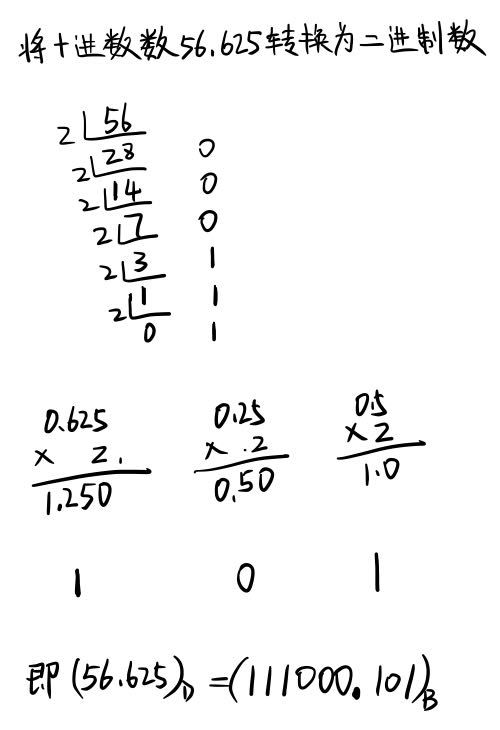 将十进数数56.625转换为二进制数
2 56
2 28 0
2 14 0
2 7 0
2 3 1
2 1 1
0 1
0.625 0.25 0.5
× 2. × .2 ×2
1.250 0.50 1.0
1 0 1
即(56.625)D=(111000.101)B